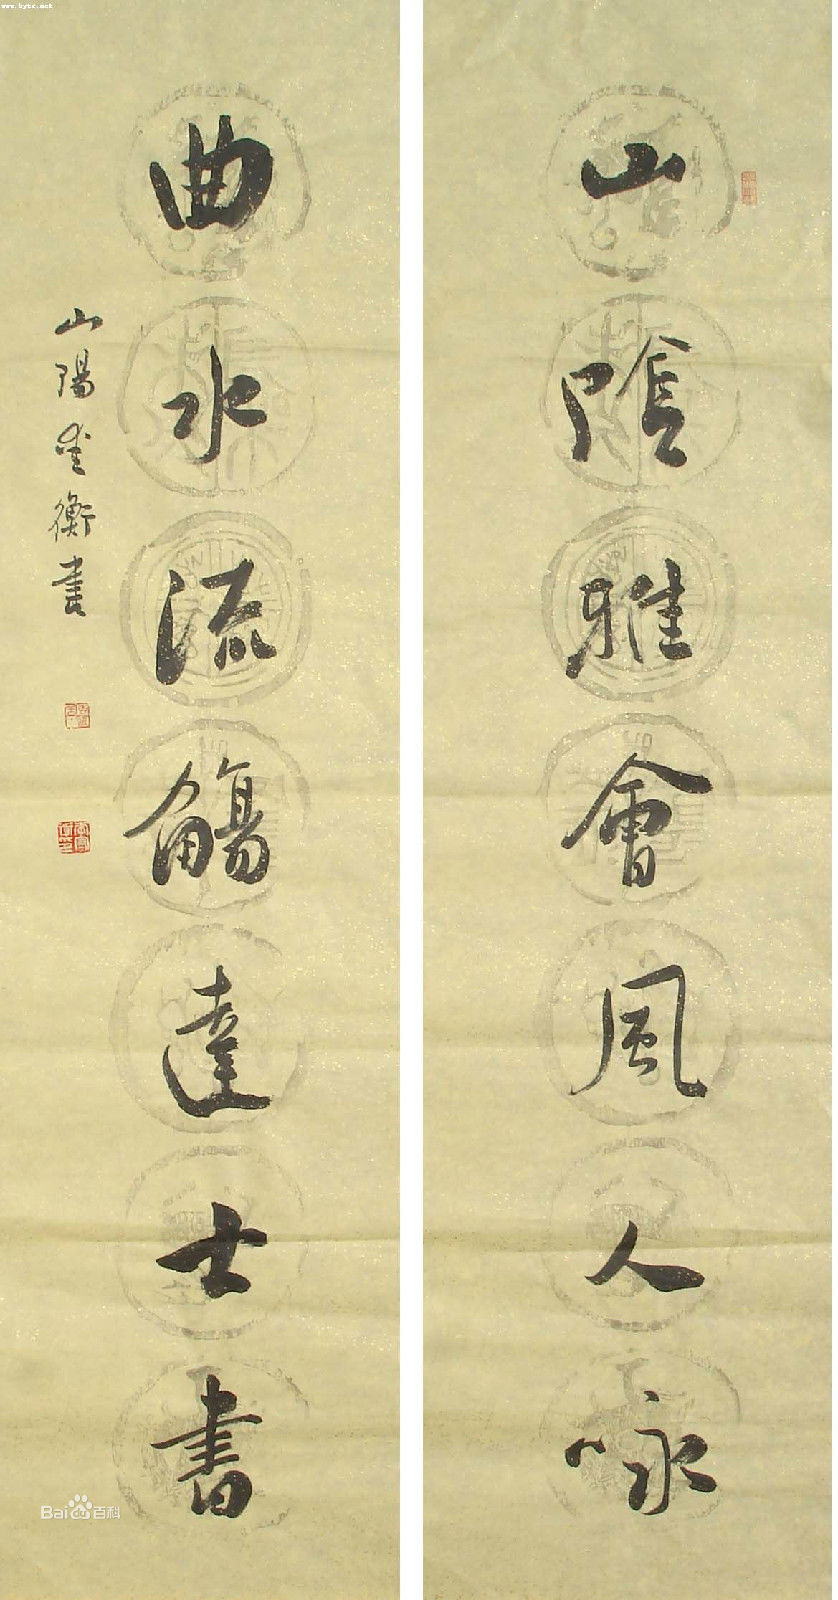 山陰雅會風人咏
曲水流觴達士書
衡書
www.bytc.net
Bai百科